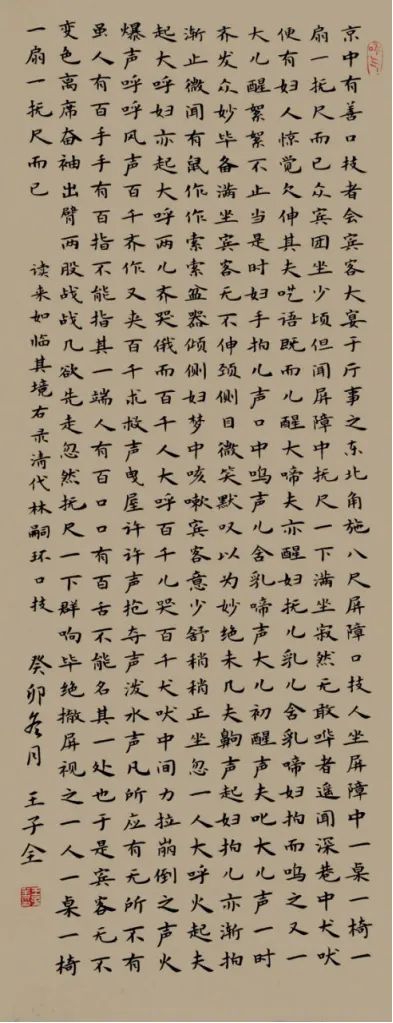 京中有善口技者会宾客大宴于厅事之东北角施八尺屏障口技人坐屏障中一桌一椅一
扇一抚尺而已众宾团坐少顷但闻屏障中抚尺一下满坐寂然无敢哗者遥闻深巷中犬吠
便有妇人惊觉欠伸其夫呓语既而儿醒大啼夫亦醒妇抚儿乳儿含乳啼妇拍而呜之又一
大儿醒絮絮不止当是时妇手拍儿声口中呜声儿含乳啼声大儿初醒声夫叱大儿声一时
齐发众妙毕备满坐宾客无不伸颈侧目微笑默叹以为妙绝未几夫齁声起妇拍儿亦渐拍
渐止微闻有鼠作作索索盆器倾侧妇梦中咳嗽宾客意少舒稍稍正坐忽一人大呼火起夫
起大呼妇亦起大呼两儿齐哭俄而百千人大呼百千儿哭百千犬吠中间力拉崩倒之声火
爆声呼呼风声百千齐作又夹百千求救声曳屋许许声抢夺声泼水声凡所应有无所不有
虽人有百手手有百指不能指其一端人有百口口有百舌不能名其一处也于是宾客无不
变色离席奋袖出臂两股战战几欲先走忽然抚尺一下群响毕绝撤屏视之一人一桌一椅
一扇一抚尺而已 读来如临其境右录清代林嗣环口技 癸卯冬月 王子全